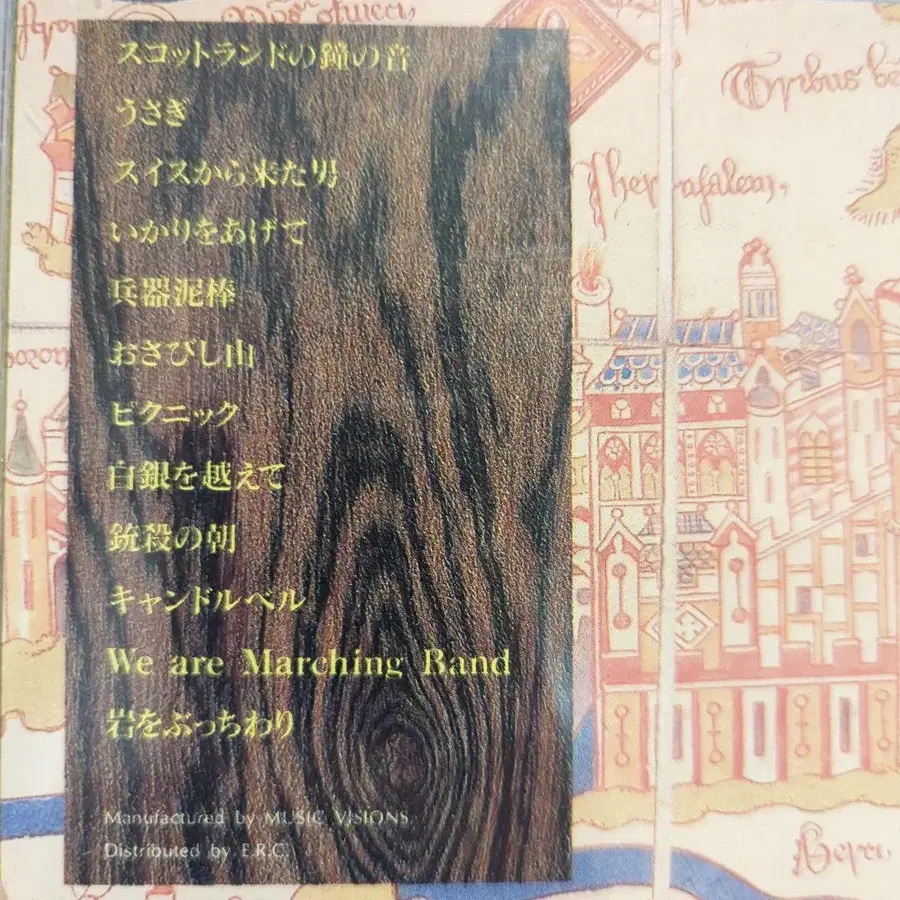 スコットランドの鐘の音
うさぎ
スイスから来た男
いかりをあげて
兵器泥棒
おさびし山
ピクニック
白銀を越えて
銃殺の朝
キャンドルベル
We are Marching Band
岩をぶっちわり
Manufactured by MUSIC VISIONS.
Distributed by E.R.C.